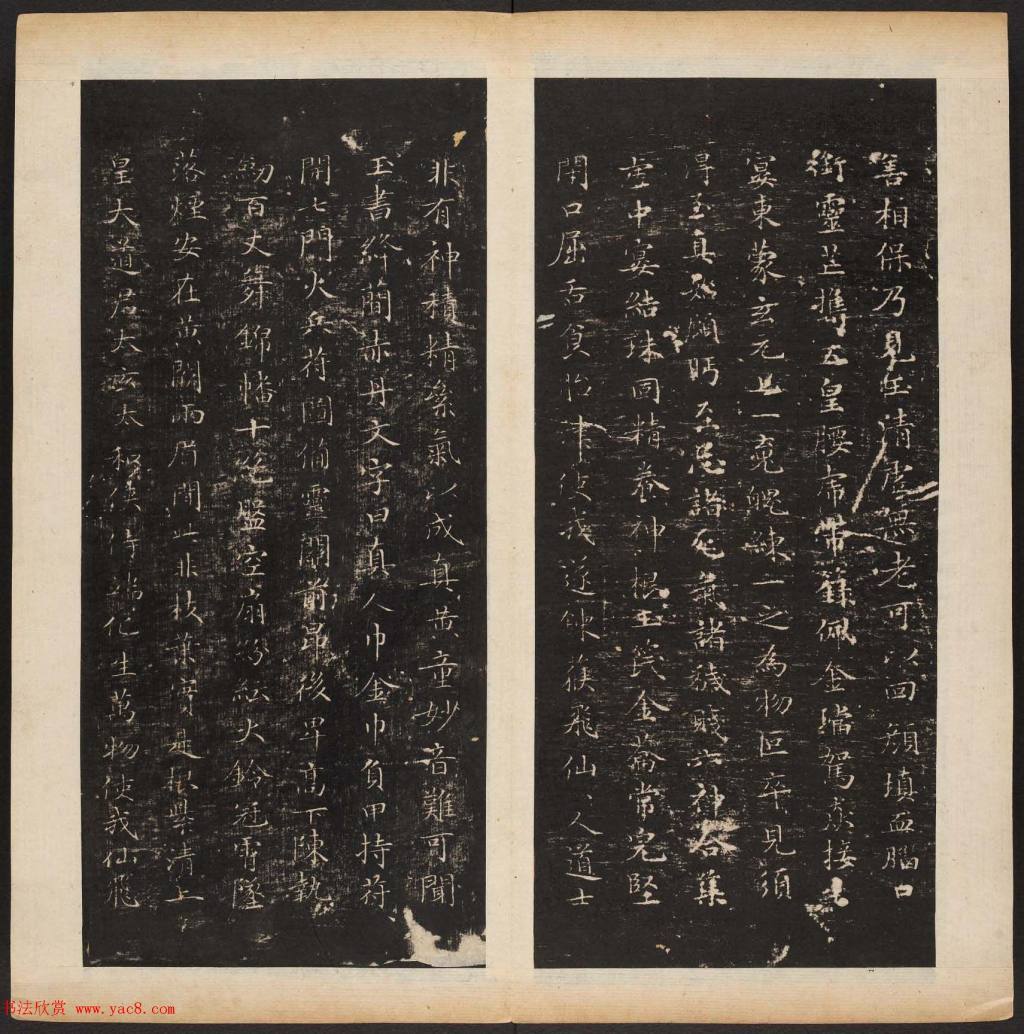 善相保乃見玉清虛無老可以回顏填血腦口
銜靈芝攜五皇腰帶虎籙佩金璫駕欻接生
宴東蒙玄元上一䰟魄練一之為物叵卒見須
得至真始顧眄至忌諸死氣諸穢賤六神合集
虛中宴結珠固精養神根玉笢金籥常完堅
閉口屈舌食胎津使我遂鍊獲飛仙仙人道士
非有神積精絫氣以成真黃童妙音難可聞
玉書絳蕳赤丹文字曰真人巾金巾負甲持符
開七門火兵符圖備靈關前昂後卑高下陳執
劍百丈舞錦幡十絕盤空扇紛紜火鈴冠霄隊
落煙安在黃闕兩眉間此非枝葉實是根擧清上
皇大道君太玄太和俠侍端化生萬物使我仙飛
书法欣赏 www.yac8.com